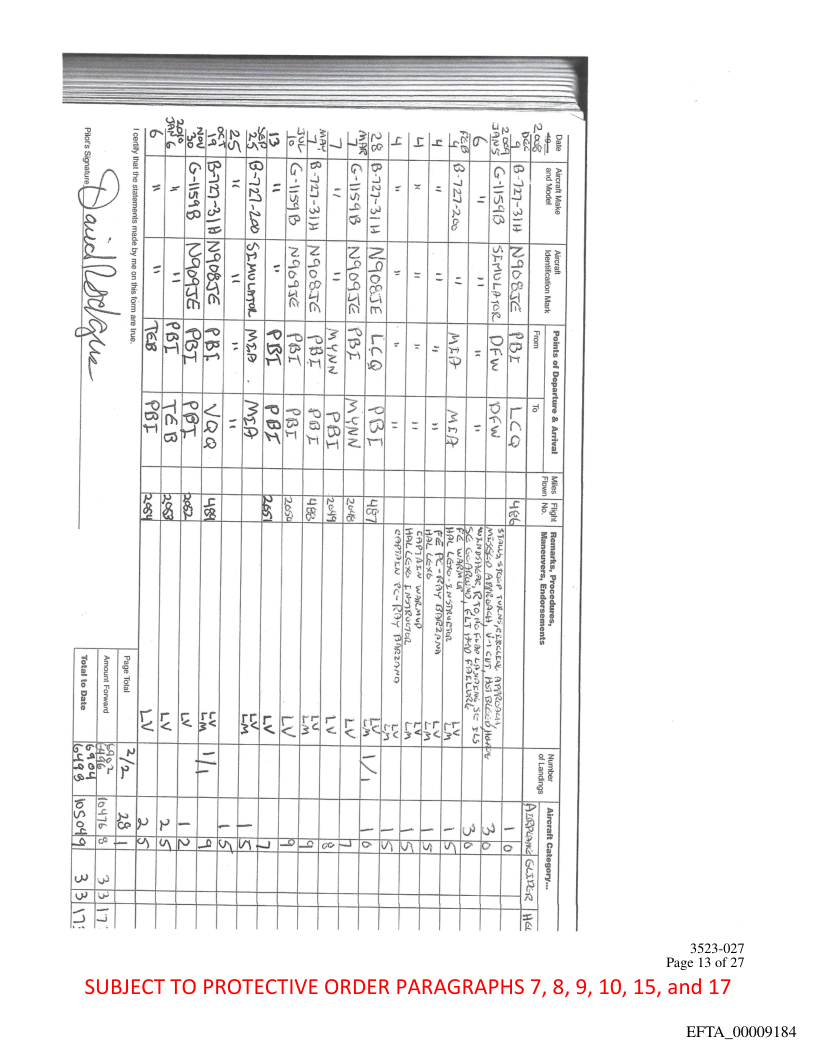 Date Aircraft Make and Model Aircraft Identification Mark Points of Departure & Arrival From To Miles Flown Flight No. Remarks, Procedures, Maneuvers, Endorsements Number of Landings Aircraft Category...
2008 AIRPLANE GLIDER HEL
DEC 9 B-727-31H N908JE PBI LCQ 486 1 0
2009 JAN 5 G-1159B SIMULATOR DFW DFW STALLS, STEEP TURNS, CIRCLING APPROACH, MISSED APPROACH, V-1 CUT, 3 0
6 " " " " WINDSHEAR, RTO, NO FLAP LANDING, SE ILS SE GOAROUND, FAILURE 3 0
FEB 4 B-727-200 " MIA MIA FE WARMUP HAL LEXO-INSTRUCTOR LV LM 1 5
4 " " " " FE PC-RAY BARZANA HAL LEXO LV LM 1 5
4 " " " " CAPTAIN WARMUP HAL LEXO INSTRUCTOR LV LM 1 5
4 " " " " CAPTAIN PC-RAY BARZANO LV LM 1 5
28 B-727-31H N908JE LCQ PBI 487 LV LM 1/1 1 0
MAR 7 G-1159B N909JE PBI MYNN 2048 LV 7
7 " " MYNN PBI 2049 LV 8
MAY 7 B-727-31H N908JE PBI PBI 488 LV LM 9
JUL 10 G-1159B N909JE PBI PBI 2050 LV 9
13 " " PBI PBI 2051 LV 7
SEP 25 B-727-200 SIMULATOR MIA MIA LV LM 1 5
25 " " " " 1 5
OCT 19 B-727-31H N908JE PBI VQQ 489 LV LM 1/1 9
NOV 30 G-1159B N909JE PBI PBI 2052 LV 1 2
2010 JAN 6 " " PBI TEB 2053 LV 2 5
6 " " TEB PBI 2054 LV 2 5
I certify that the statements made by me on this form are true.
Page Total 2/2 28 1
Amount Forward 6902 6496 10476 8 3 3 17
Total to Date 6904 6498 10504 9 3 3 17
Pilot's Signature David Rodgers
3523-027
Page 13 of 27
SUBJECT TO PROTECTIVE ORDER PARAGRAPHS 7, 8, 9, 10, 15, and 17
EFTA_00009184